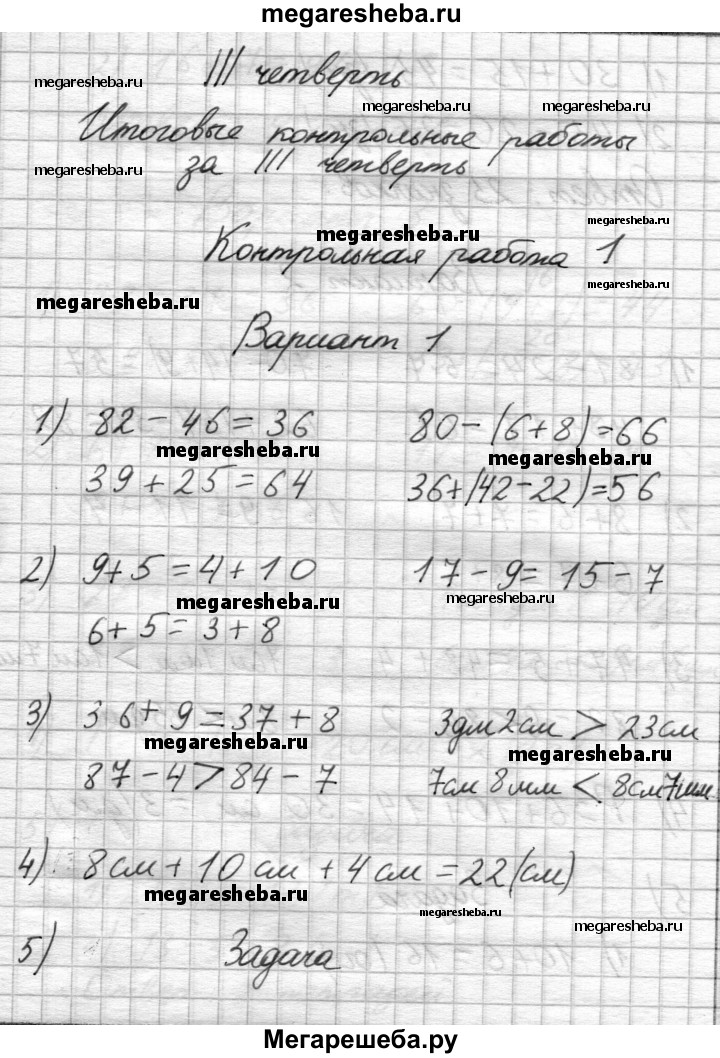 megaresheba.ru
III четверть
megaresheba.ru
megaresheba.ru megaresheba.ru
Итоговые контрольные работы
за III четверть
megaresheba.ru
megaresheba.ru
megaresheba.ru
Контрольная работа 1
megaresheba.ru
megaresheba.ru
Вариант 1
1) 82 - 46 = 36 80 - (6+8) = 66
megaresheba.ru megaresheba.ru
39 + 25 = 64 36+(42-22)=56
2) 9+5 = 4+10 17 - 9 = 15 - 7
megaresheba.ru megaresheba.ru
6+5 = 3+8
3) 36+9 = 37+8 3дм2см > 23см
megaresheba.ru megaresheba.ru
87-4 > 84-7 7см 8мм < 8см7мм
4) 8см + 10см + 4см = 22(см)
megaresheba.ru megaresheba.ru
megaresheba.ru
5) Задача
Мегарешеба.ру